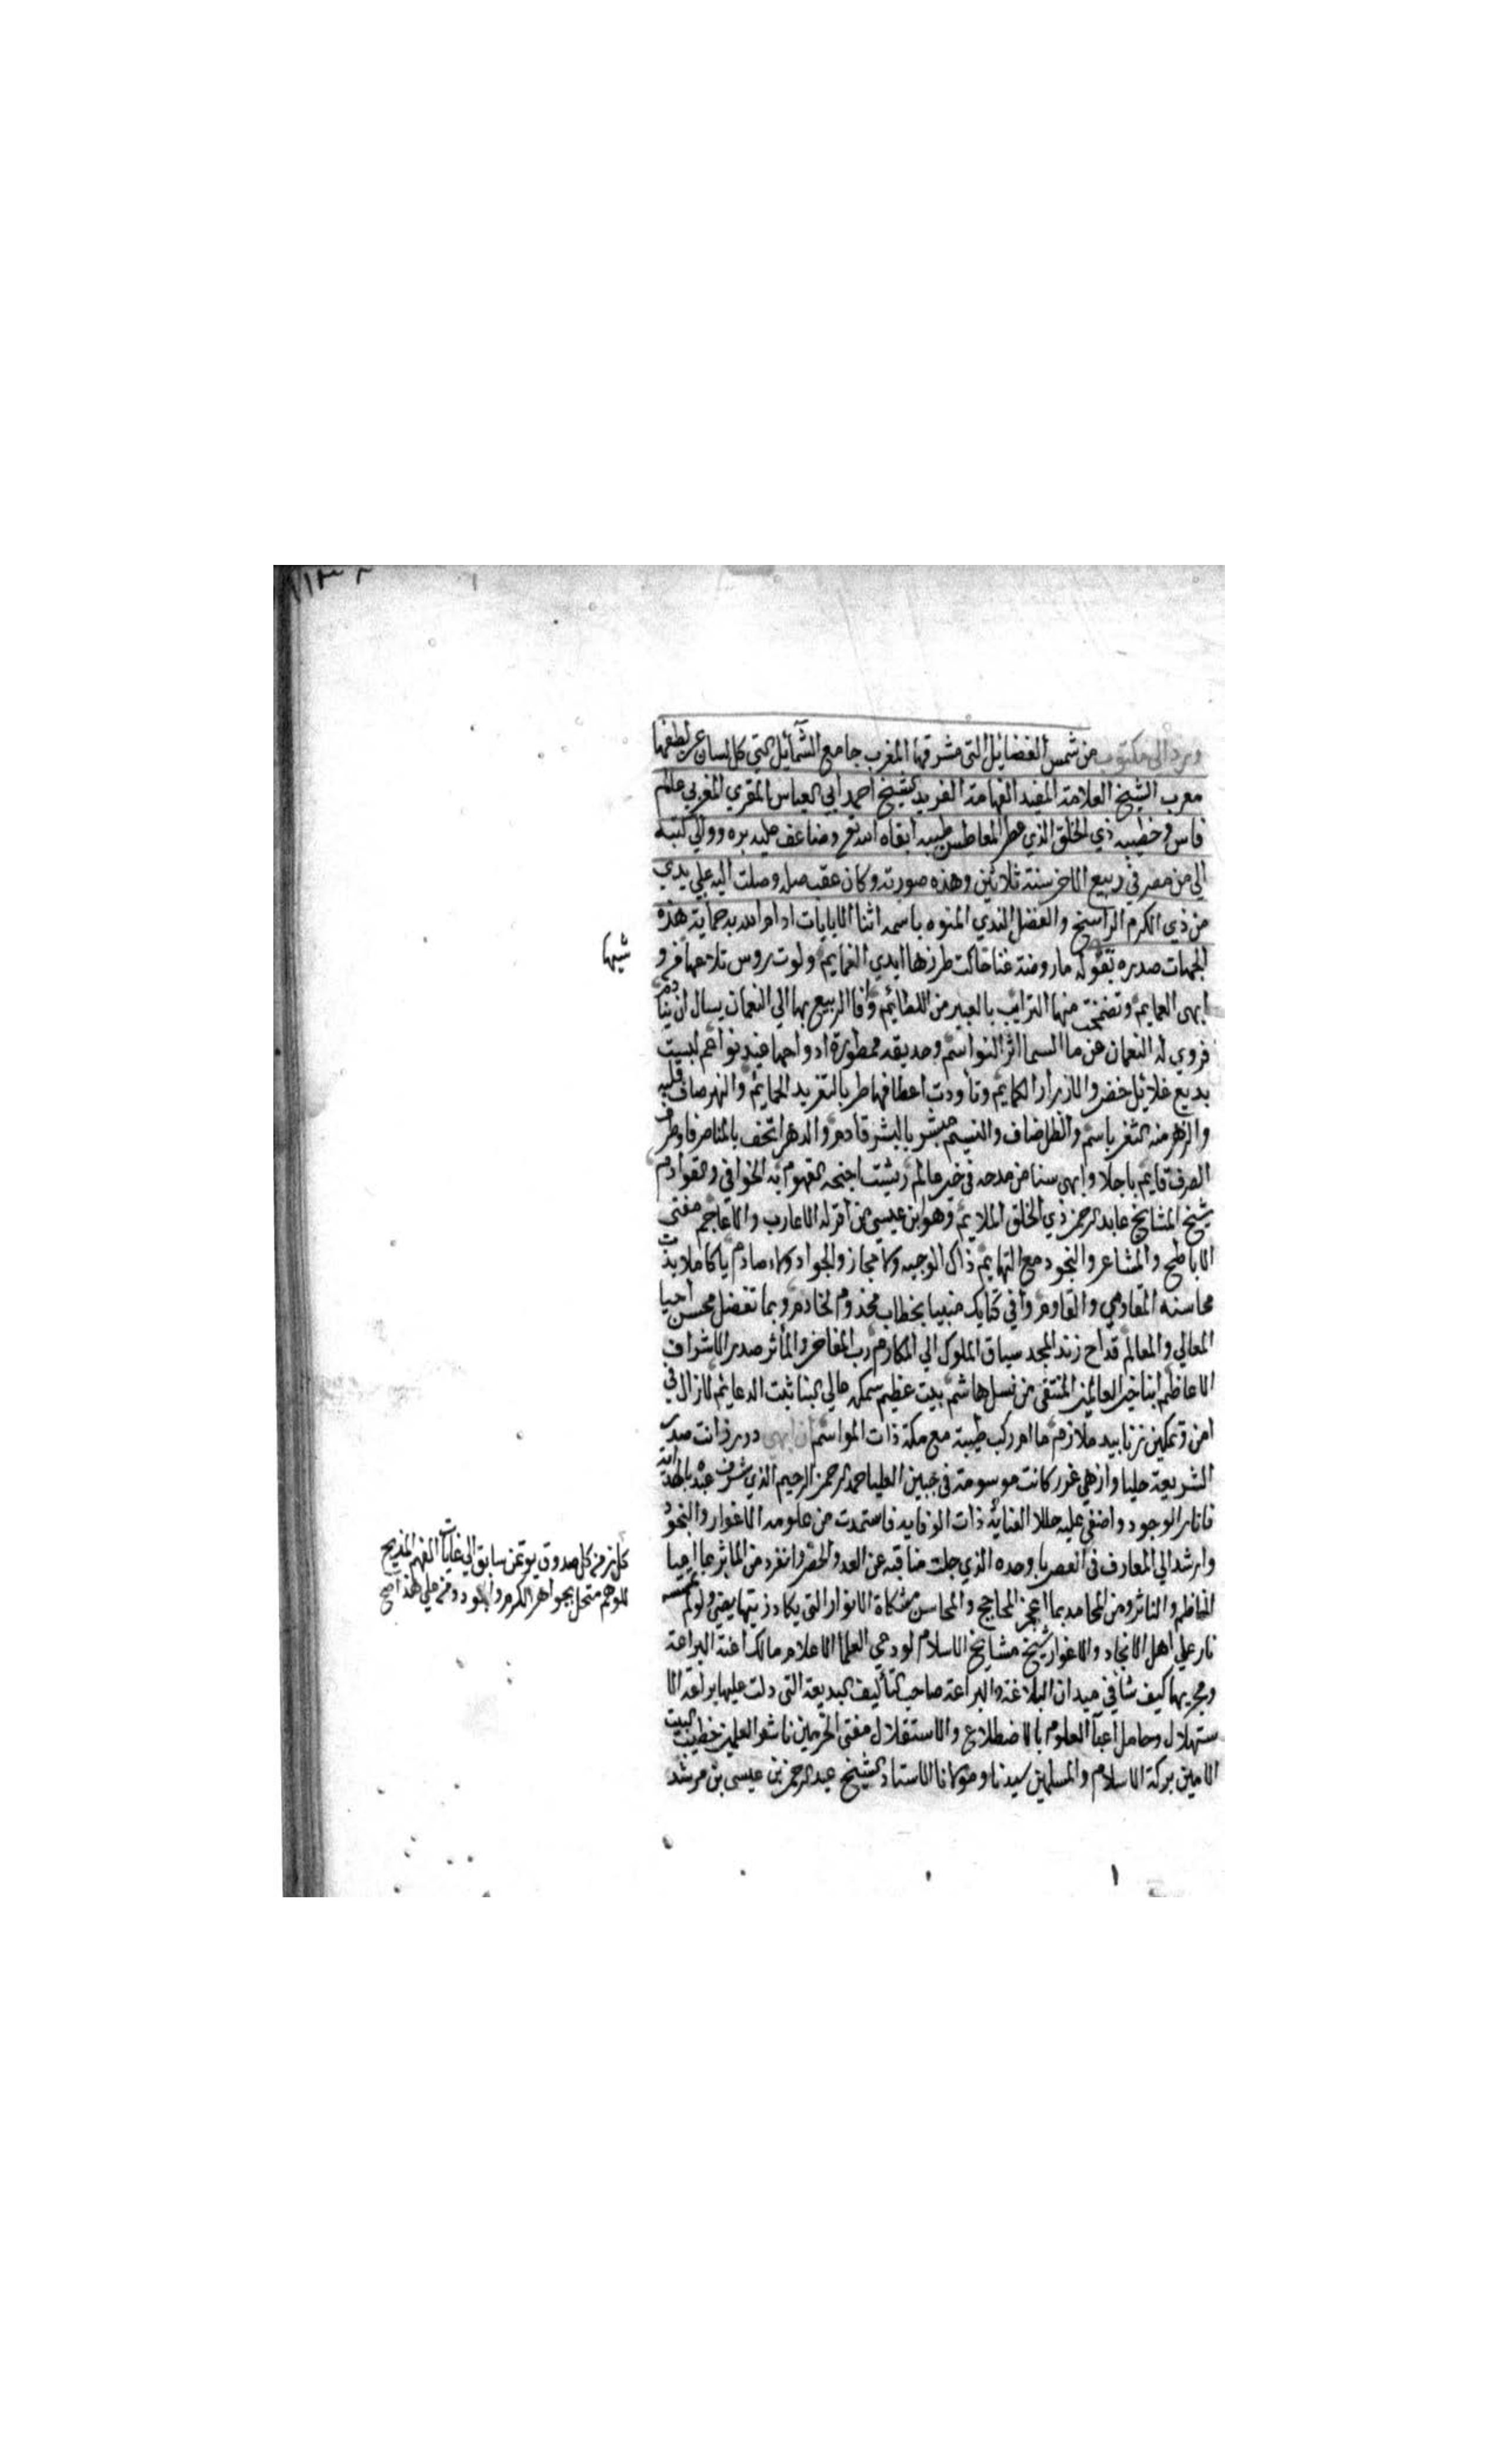 ورد الي مكتوب من شمس الفضايل التي مشرقها المغرب جامع الشمايل التي كل لسان عن لطفها
معرب الشيخ العلامة المفيد الفهامة الفريد الشيخ احمد ابي العباس المقري المغربي عالم
فاس وخطيبه ذي الخلق الذي عطر المعاطس طيبه ابقاه الله تع وضاعف عليه بره ووالي كتبه
الي من مصر في ربيع الاخر سنة ثلاثين وهذه صورته وكان عقب صله وصلت اليه علي يدي
من ذي الكرم الراسخ والفضل الندي المنوه باسمه اثنا الابيات ادام الله به حماية هذه
الجهات صدره بقوله ما روضة غنا حاكت طرزها ايدي الغمايم ولوت روس تلاعها فرو
شيها
ابهى العمايم وتضمخت منها الترايب بالعبير من اللطائم وافا الربيع بها الي النعمان يسال ان ينادم
فروي له النعمان عن ما السما اثر النواسم وحديقه ممطورة ادواحها غيد نواعم لبست
بديع غلائل خضر والازرار الكمايم وتأودت اعطافها طربا لتغريد الحمايم والنهر صاف قلبه
والزهر منه الثغر باسم والظل ضاف والنسيم مبشر بالبشر قادم والدهر اتحف بالمنا صرفا وطرف
الصرف قايم باجلا وابهى سنا من مدحه في خير عالم ريشت اجنحه الفهوم به الخوافي والقوادم
شيخ المشايخ عابد الرحمن ذي الخلق الملايم وهو ابن عيسى من اقر له الاعارب والاعاجم مفتي
الاباطح والمشاعر والنجود مع التهايم ذاك الوجيه ولا مجاز والجواد ولا مصادم يا كاملا بذت
محاسنه المقادمي والقاوم وافي كتابك منبيا بخطاب مخدوم لخادم وبما تفضل محسن احيا
المعالي والمعالم قداح زند المجد سباق الملوك الي المكارم رب المفاخر والمأثر صدر الاشراف
الاعاظم ابنا خير العالمين المنتقى من نسل هاشم بيت عظيم سمكه عالي البنا ثبت الدعايم لا زال في
امن وتمكين وتاييد ملازم ما ام ركب طيبة مع مكة ذات المواسم ان ابهي درر زانت صدر
الشريعة حليا وازهي غرر كانت موسومة في جبين العليا حمد الرحمن الرحيم الذي شرف عبده بالهداية
فانار الوجود واضفي عليه حللا الغنايه ذات الوفايد فاستمدت من علومه الاغوار والنجود
وارشد الي المعارف في العصر باوحده الذي جلت مناقبه عن العد والحضر وانفرد من الماثر بما احيا
الناظم والناثر ومن المحامد بما اعجز المحاجج والمحاسن مشكاة الانوار التي يكاد زيتها يضي ولو لم تمسسه
نار علي اهل الانجاد والاغوار شيخ مشايخ الاسلام لوذعي العلما الاعلام مالك اعنة البراعة
ومجريها كيف شا في ميدان البلاغة والبراعة صاحب التأليف البديعة التي دلت عليها براعة الا
ستهلال وحامل اعبآ العلوم بالاضطلاع والاستقلال مفتي الحرمين ناشر العلمين خطيب البيت
الامين بركة الاسلام والمسلمين سيدنا ومولانا الاستاذ الشيخ عبد الرحمن بن عيسى بن مرشد
كل صدوق يوتمن سابق الي غايات الفهم المذيح
للوهم متحل بجواهر الكرم والجود ومن علي هذا صح